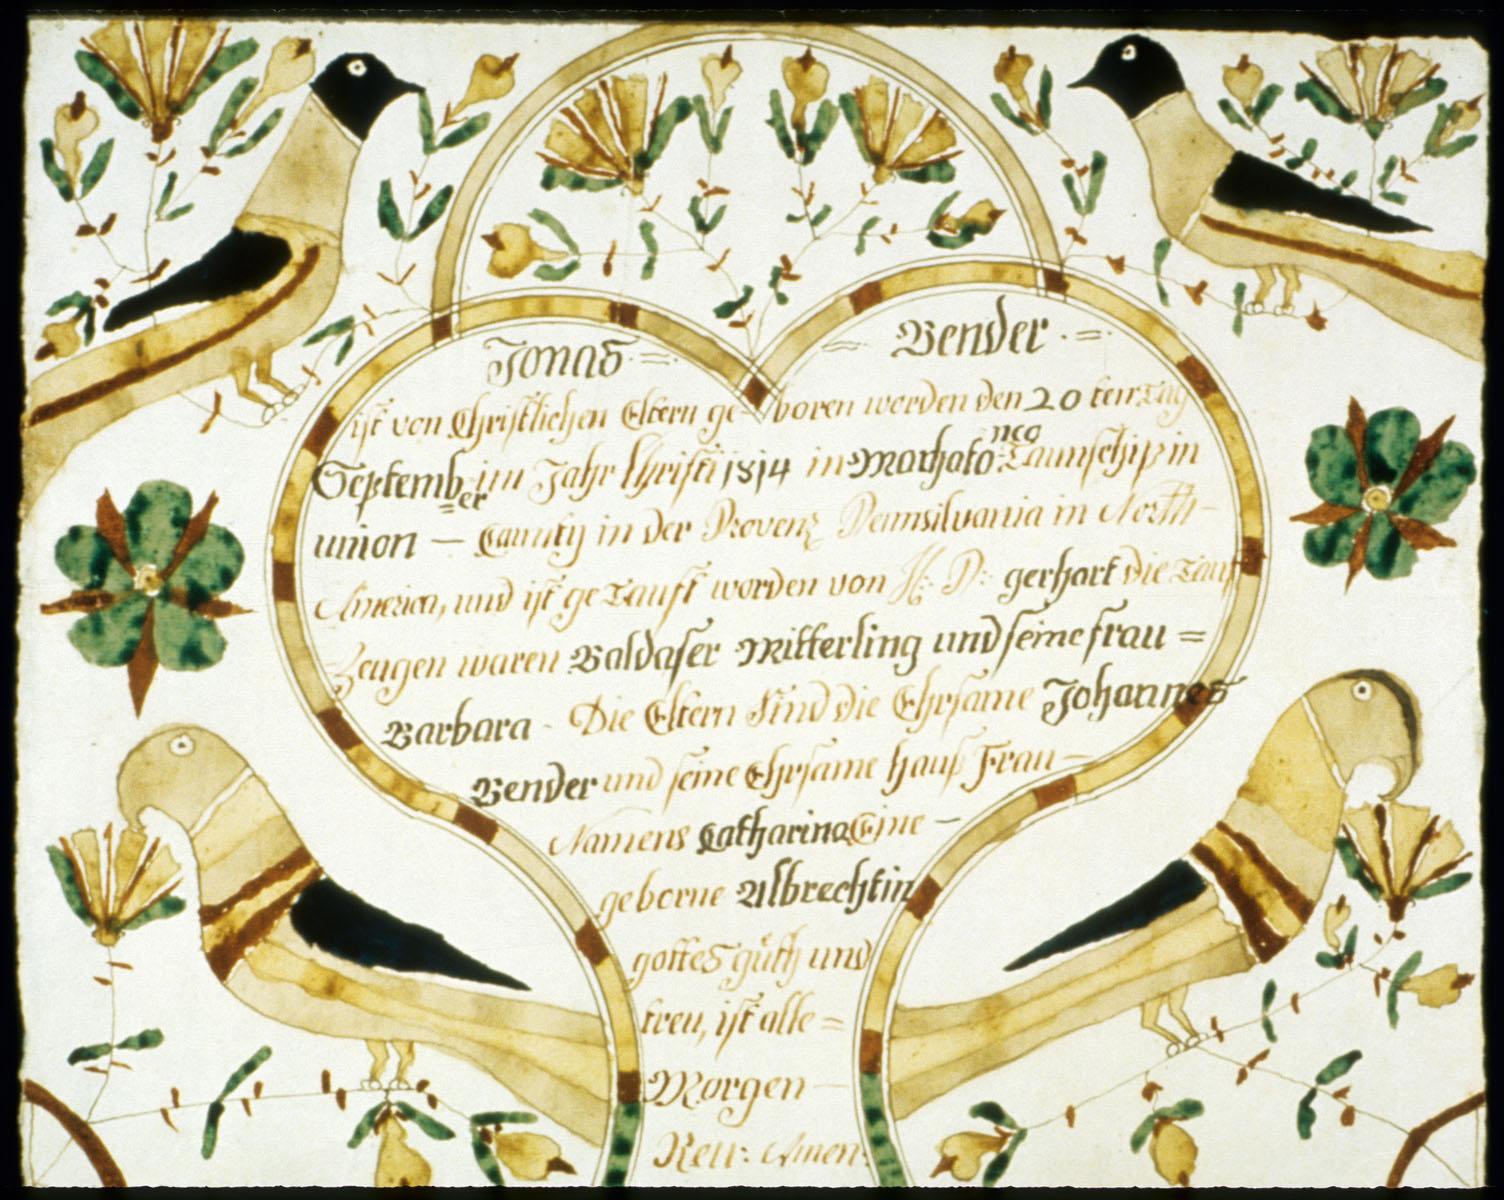 Jonas = Bender =
ist von Christlichen Eltern ge- boren worden den 20 ten Tag
September im Jahr Christi 1814 in Machatonco Taunschip in
union - Caunty in der Provenz Pennsilvania in North-
America, und ist getauft worden von H: D: gerhart die Tauf
Zeugen waren Baldaser Mitterling und seine frau =
Barbara - Die Eltern Sind die Ehrsame Johannes
Bender und seine Ehrsame hauß Frau -
Namens Catharina Eine -
geborne Albrechtin
gottes güth und
treu, ist alle =
Morgen -
Neu: Amen: